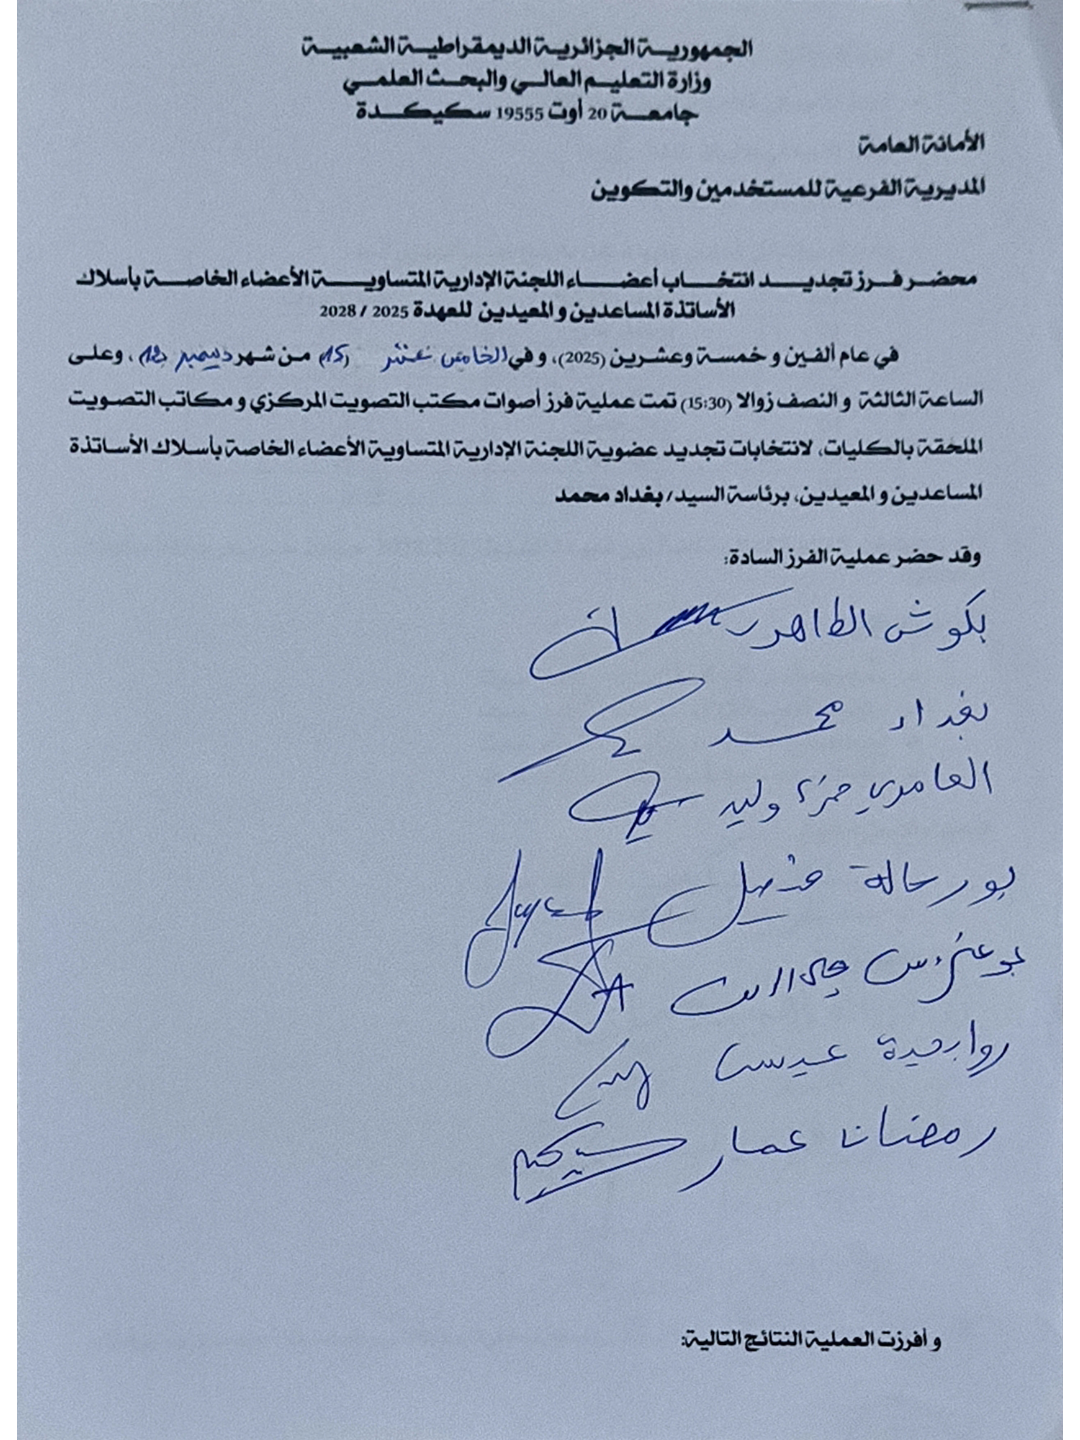 الجمهورية الجزائرية الديمقراطية الشعبية
وزارة التعليم العالي والبحث العلمي
جامعة 20 أوت 19555 سكيكدة
الأمانة العامة
المديرية الفرعية للمستخدمين والتكوين
محضر فرز تجديد انتخاب أعضاء اللجنة الإدارية المتساوية الأعضاء الخاصة بأسلاك
الأساتذة المساعدين و المعيدين للعهدة 2025 / 2028
في عام ألفين و خمسة وعشرين (2025)، و في الخامس عشر (15) من شهر ديسمبر (12)، وعلى
الساعة الثالثة و النصف زوالا (15:30) تمت عملية فرز أصوات مكتب التصويت المركزي و مكاتب التصويت
الملحقة بالكليات، لانتخابات تجديد عضوية اللجنة الإدارية المتساوية الأعضاء الخاصة بأسلاك الأساتذة
المساعدين و المعيدين، برئاسة السيد/ بغداد محمد
وقد حضر عملية الفرز السادة:
بكوش الطاهر
بغداد محمد
العامري حمزة وليد
بورحالة فيصل
روابحية عيسى
رمضان عمار
و أفرزت العملية النتائج التالية: